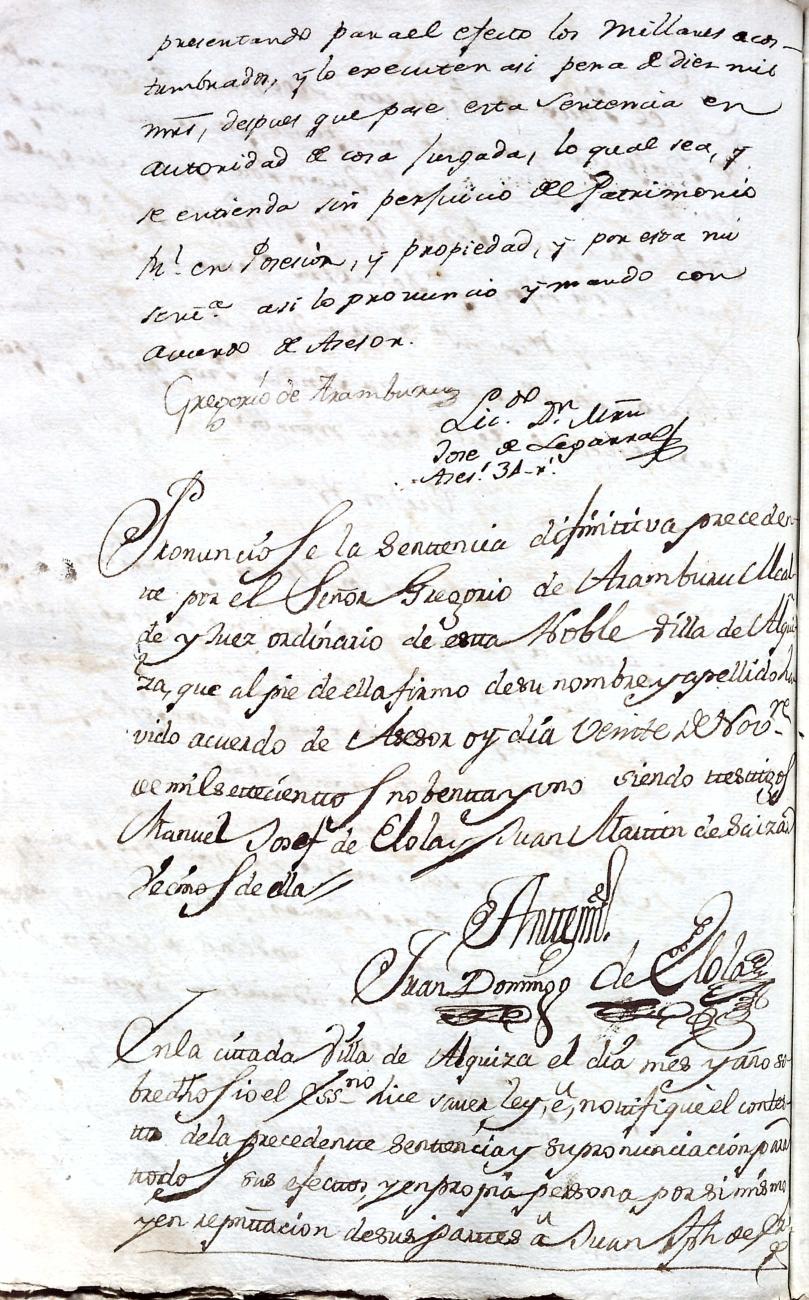 presentando para el efecto los Millares acos-
tumbrados, y lo executen asi pena de diez mil
mrs, despues que pase esta Sentencia en
autoridad de cosa Jusgada, lo qual sea, y
se entienda sin perjuicio del Patrimonio
Rl. en Posesion, y propiedad, y por esta mi
sentª. asi lo pronuncio y mando con
acuerdo de Asesor.
Gregorio de Aramburu
Lic.do Dn. Mrn
Jose de Leparra
Ases.r
Pronunciose la Senttencia difinittiva preceden-
tte por el Señor Gregorio de Aramburu Alcal-
de y Juez ordinario de estta Noble Villa de Alqui
za, que al pie de ella firmo de su nombre y apellido ha
vido acuerdo de Asesor oy dia Veinte de Nov.re
de mil settecienttos nobentta y uno siendo ttesttigos
Manuel Josef de Elola y Juan Marttin de Saizar
Vecinos de ella //
Anttemi.
Juan Domingo de Elola
En la cittada Villa de Alquiza el dia mes y año so-
bredhos io el Essno hice saver, ley, é, nottifiqué el conte-
de la precedentte senttencia y su pronunciación para
ttodos sus efecttos, y en propia persona por si mismo
y en representtacion de sus parttes a Juan Jph de